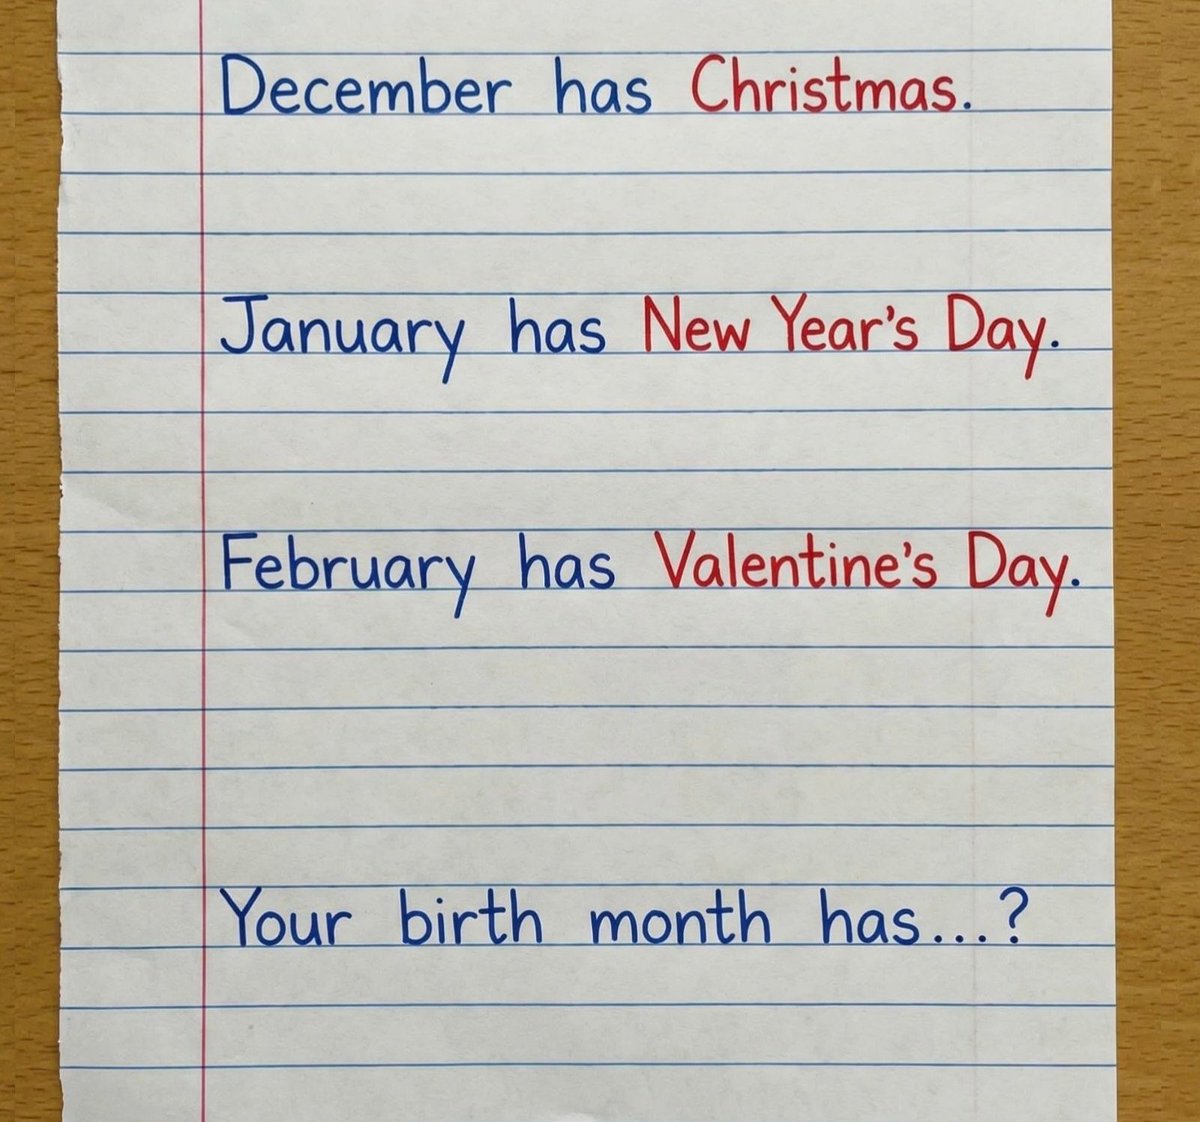 December has Christmas.
January has New Year's Day.
February has Valentine's Day.
Your birth month has...?